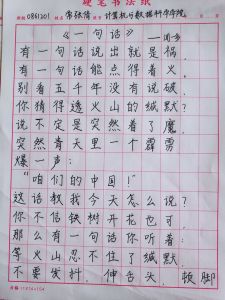 硬笔书法纸
0861201 常张倩 计算机与数据科学学院
《一句话》
——闻一多
有一句话说出就是祸，
有一句话能点得着火，
别看五千年没有说破，
你猜得透火山的缄默？
说不定是突然着了魔，
突然青天里一个霹雳
爆一声：
“咱们的中国！”
这话教我今天怎么说？
你不信铁树开花也可，
那么有一句话你听着：
等火山忍不住了缄默，
不要发抖，伸舌头，顿脚